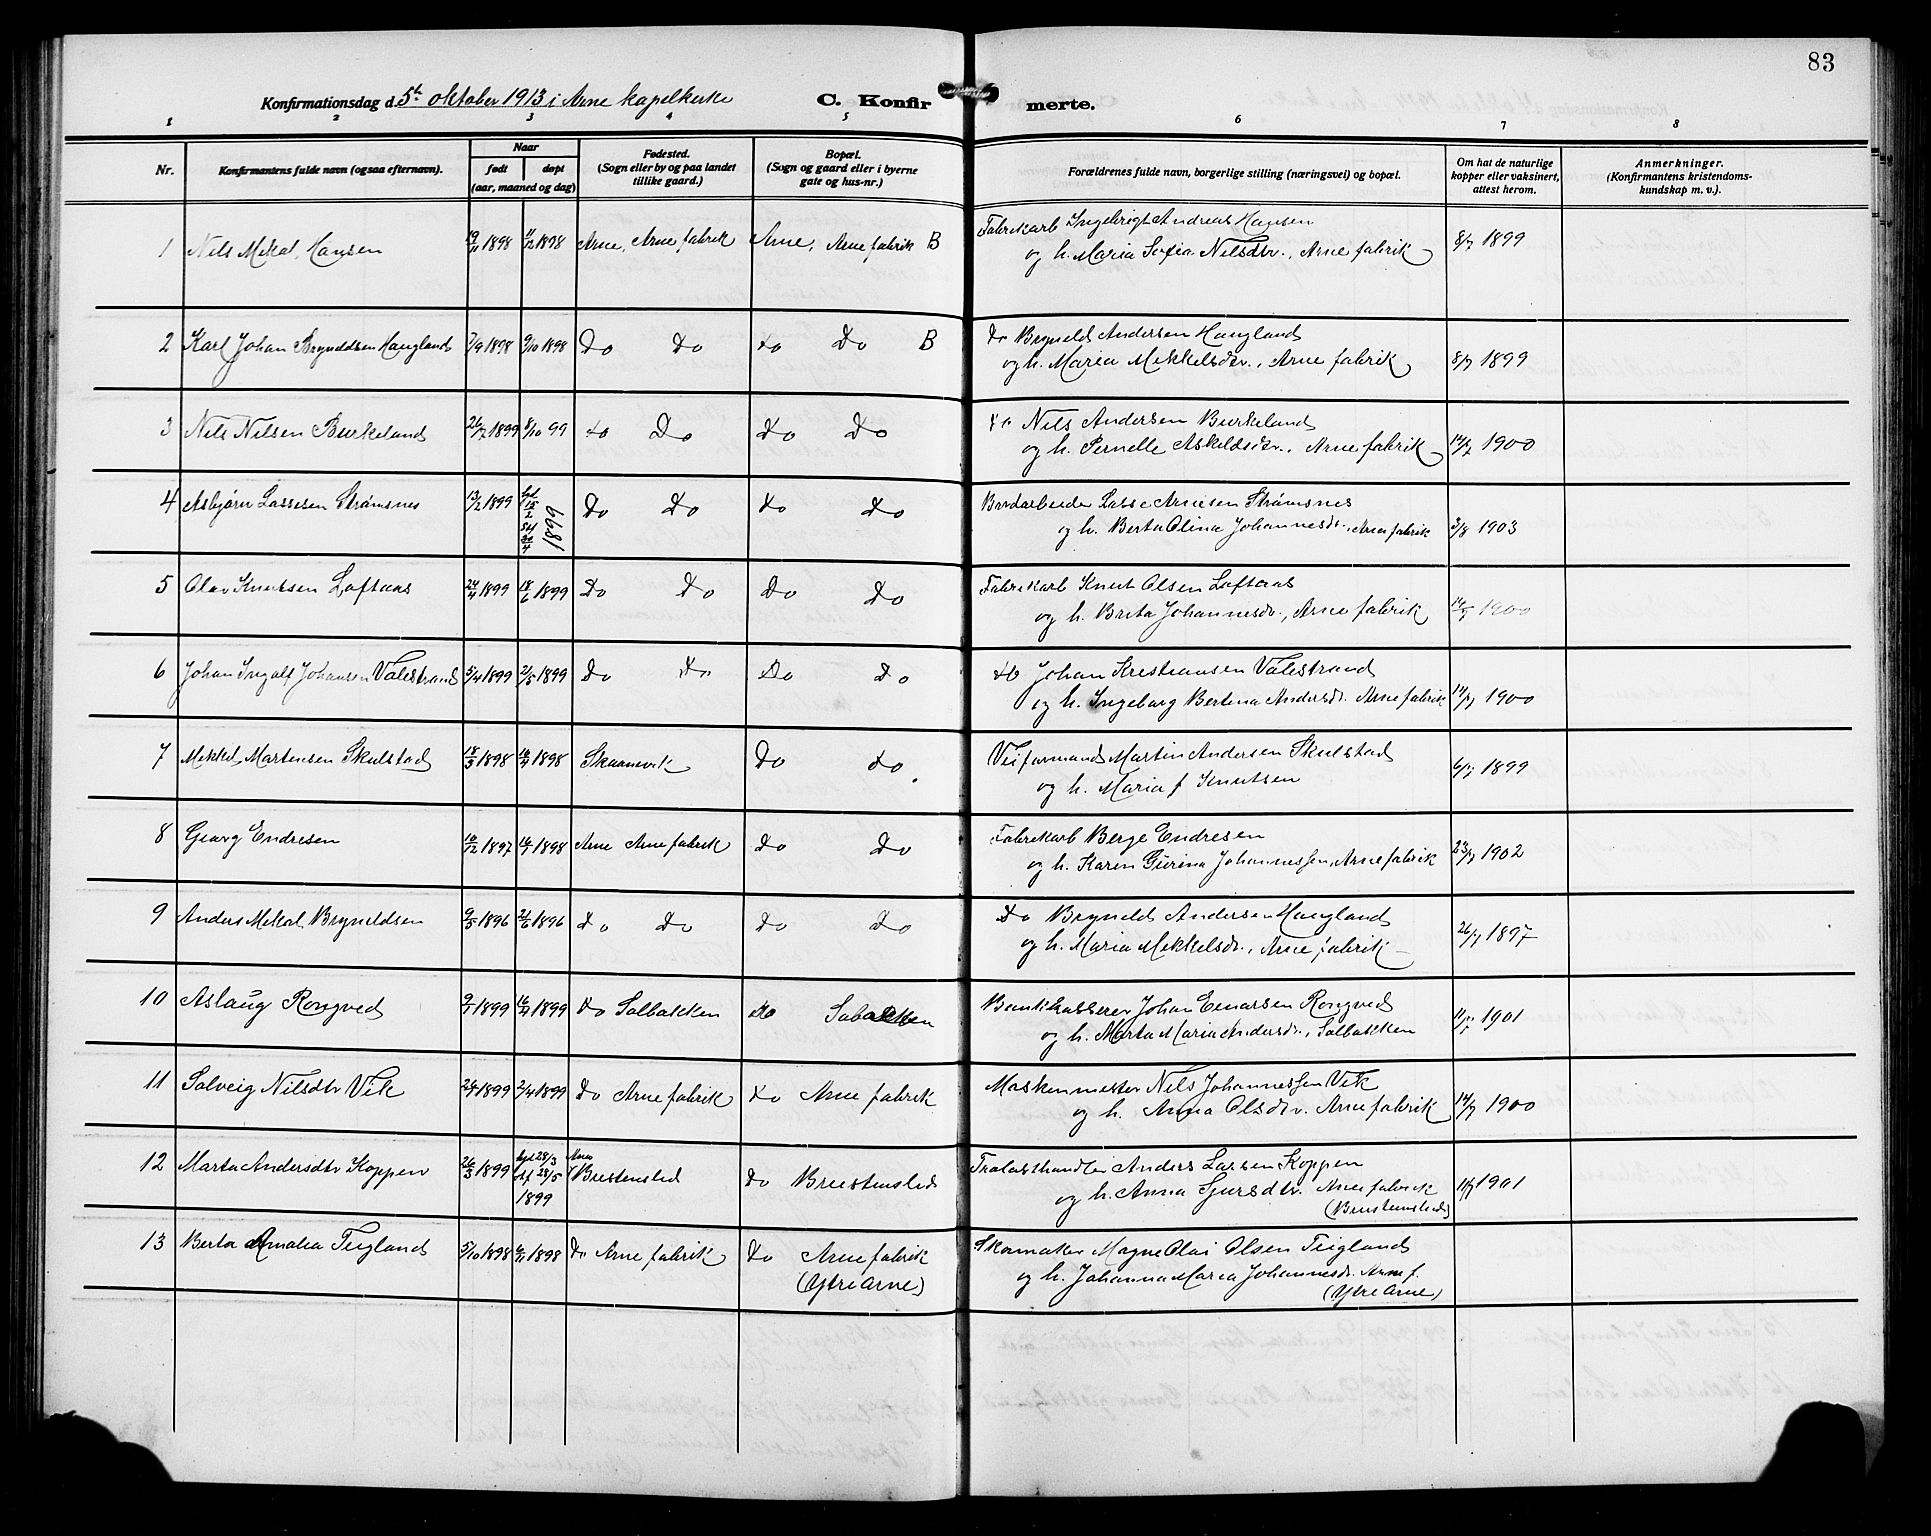 83
Konfirmationsdag d. 5te oktober 1913 i Arne kapelkirke C. Konfirmerte.
1 2 3 4 5 6 7 8
Nr. Konfirmantens fulde navn (ogsaa efternavn). Naar født døpt (aar, maaned og dag) Fødested. (Sogn eller by og paa landet tillike gaard.) Bopæl. (Sogn og gaard eller i byerne gate og hus-nr.) Forældrenes fulde navn, borgerlige stilling (næringsvei) og bopæl. Om hat de naturlige kopper eller vaksinert, attest herom. Anmerkninger. (Konfirmantens kristendoms-kundskap m. v.).
1 Nils Mikal Hansen 19/11 1898 11/12 1898 Arne, Arne fabrik Arne, Arne fabrik B Fabrikarb Ingebrigt Andreas Hansen 8/7 1899
og h. Maria Sofia Nilsdtr., Arne fabrik
2 Karl Johan Brynildsen Haugland 7/9 1898 9/10 1898 Do Do Do Do B Do Brynild Andersen Haugland
og h. Maria Mikkelsdtr., Arne fabrik 8/7 1899
3 Nils Nilsen Birkeland 26/7 1899 8/10 99 Do Do Do Do Do Nils Andersen Birkeland
og h. Pernelle Askildsdtr., Arne fabrik 14/7 1900
4 Asbjørn Lassesen Strømsnes 13/2 1899 15/2 30/4 1899 Do Do Do Do Lasse Arnesen Strømsnes
og h. Berta Olina Johannesdr., Arne fabrik 3/8 1903
5 Olav Knutsen Loftaas 24/4 1899 18/6 1899 Do Do Do Do Fabrikarb Knut Olsen Loftaas
og h. Brita Johannesdr., Arne fabrik 14/7 1900
6 Johan Ingolf Johansen Valestrand 5/4 1899 21/5 1899 Do Do Do Do Do Johan Kristiansen Valestrand
og h. Ingeborg Bertina Andersdr. Arne fabrik 14/7 1900
7 Mikkel Martinsen Skulstad 18/3 1898 1898 Skaanevik Do Do Veiformand Martin Andersen Skulstad 6/7 1899
og h. Maria f Knutsen
8 Georg Endresen 10/12 1897 1898 Arne Arne fabrik Do Do Fabrikarb Berge Endresen
og h. Karen Gurina Johannessen, Arne fabrik 23/7 1902
9 Anders Mikal Brynildsen 9/5 1896 21/6 1896 Do Do Do Do Do Brynild Andersen Haugland
og h. Maria Mikkelsdr., Arne fabrik 26/7 1897
10 Aslaug Rongved 1899 1899 Do Solbakken Do Solbakken Bankkasserer Johan Einarsen Rongved
og h. Marta Maria Andersdr., Solbakken 1901
11 Solveig Nilsdtr Vik 1899 2/4 1899 Do Arne fabrik Do Arne fabrik Maskinmester Nils Johannessen Vik
og h. Anna Olsdtr. Arne fabrik 14/7 1900
12 Marta Andersdtr Koppen 26/3 1899 28/3 28/5 1899 Arne Do Trælasthandler Anders Larsen Koppen
og h. Anna Sjursdtr. Arne fabrik 1901
13 Berta Amalia Teigland 5/10 1898 1898 Do Arne fabrik Do Arne fabrik (Ytre Arne) Skomaker Magne Olai Olsen Teigland
og h. Johanna Maria Johannesdr. Arne f. (Ytre Arne)